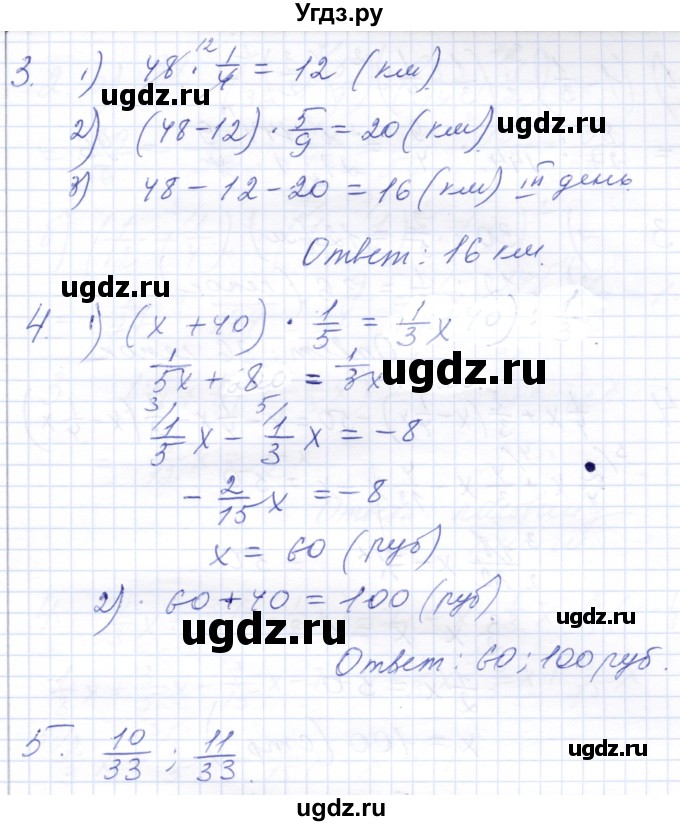 Угдз.ру
3. 1) 48 · 1/4 = 12 (км)
12
ugdz.ru
2) (48-12) · 5/9 = 20 (км)
ugdz.ru
3) 48 - 12 - 20 = 16 (км) III день.
Ответ: 16 км.
ugdz.ru
4. 1) (x + 40) · 1/5 = 1/3 x
1/5 x + 8 = 1/3 x
ugdz.ru
3/ 5/
1/5 x - 1/3 x = -8
- 2/15 x = -8
x = 60 (руб)
2) 60 + 40 = 100 (руб).
ugdz.ru
ugdz.ru
Ответ: 60; 100 руб.
5. 10/33 ; 11/33.
ugdz.ru
ugdz.ru